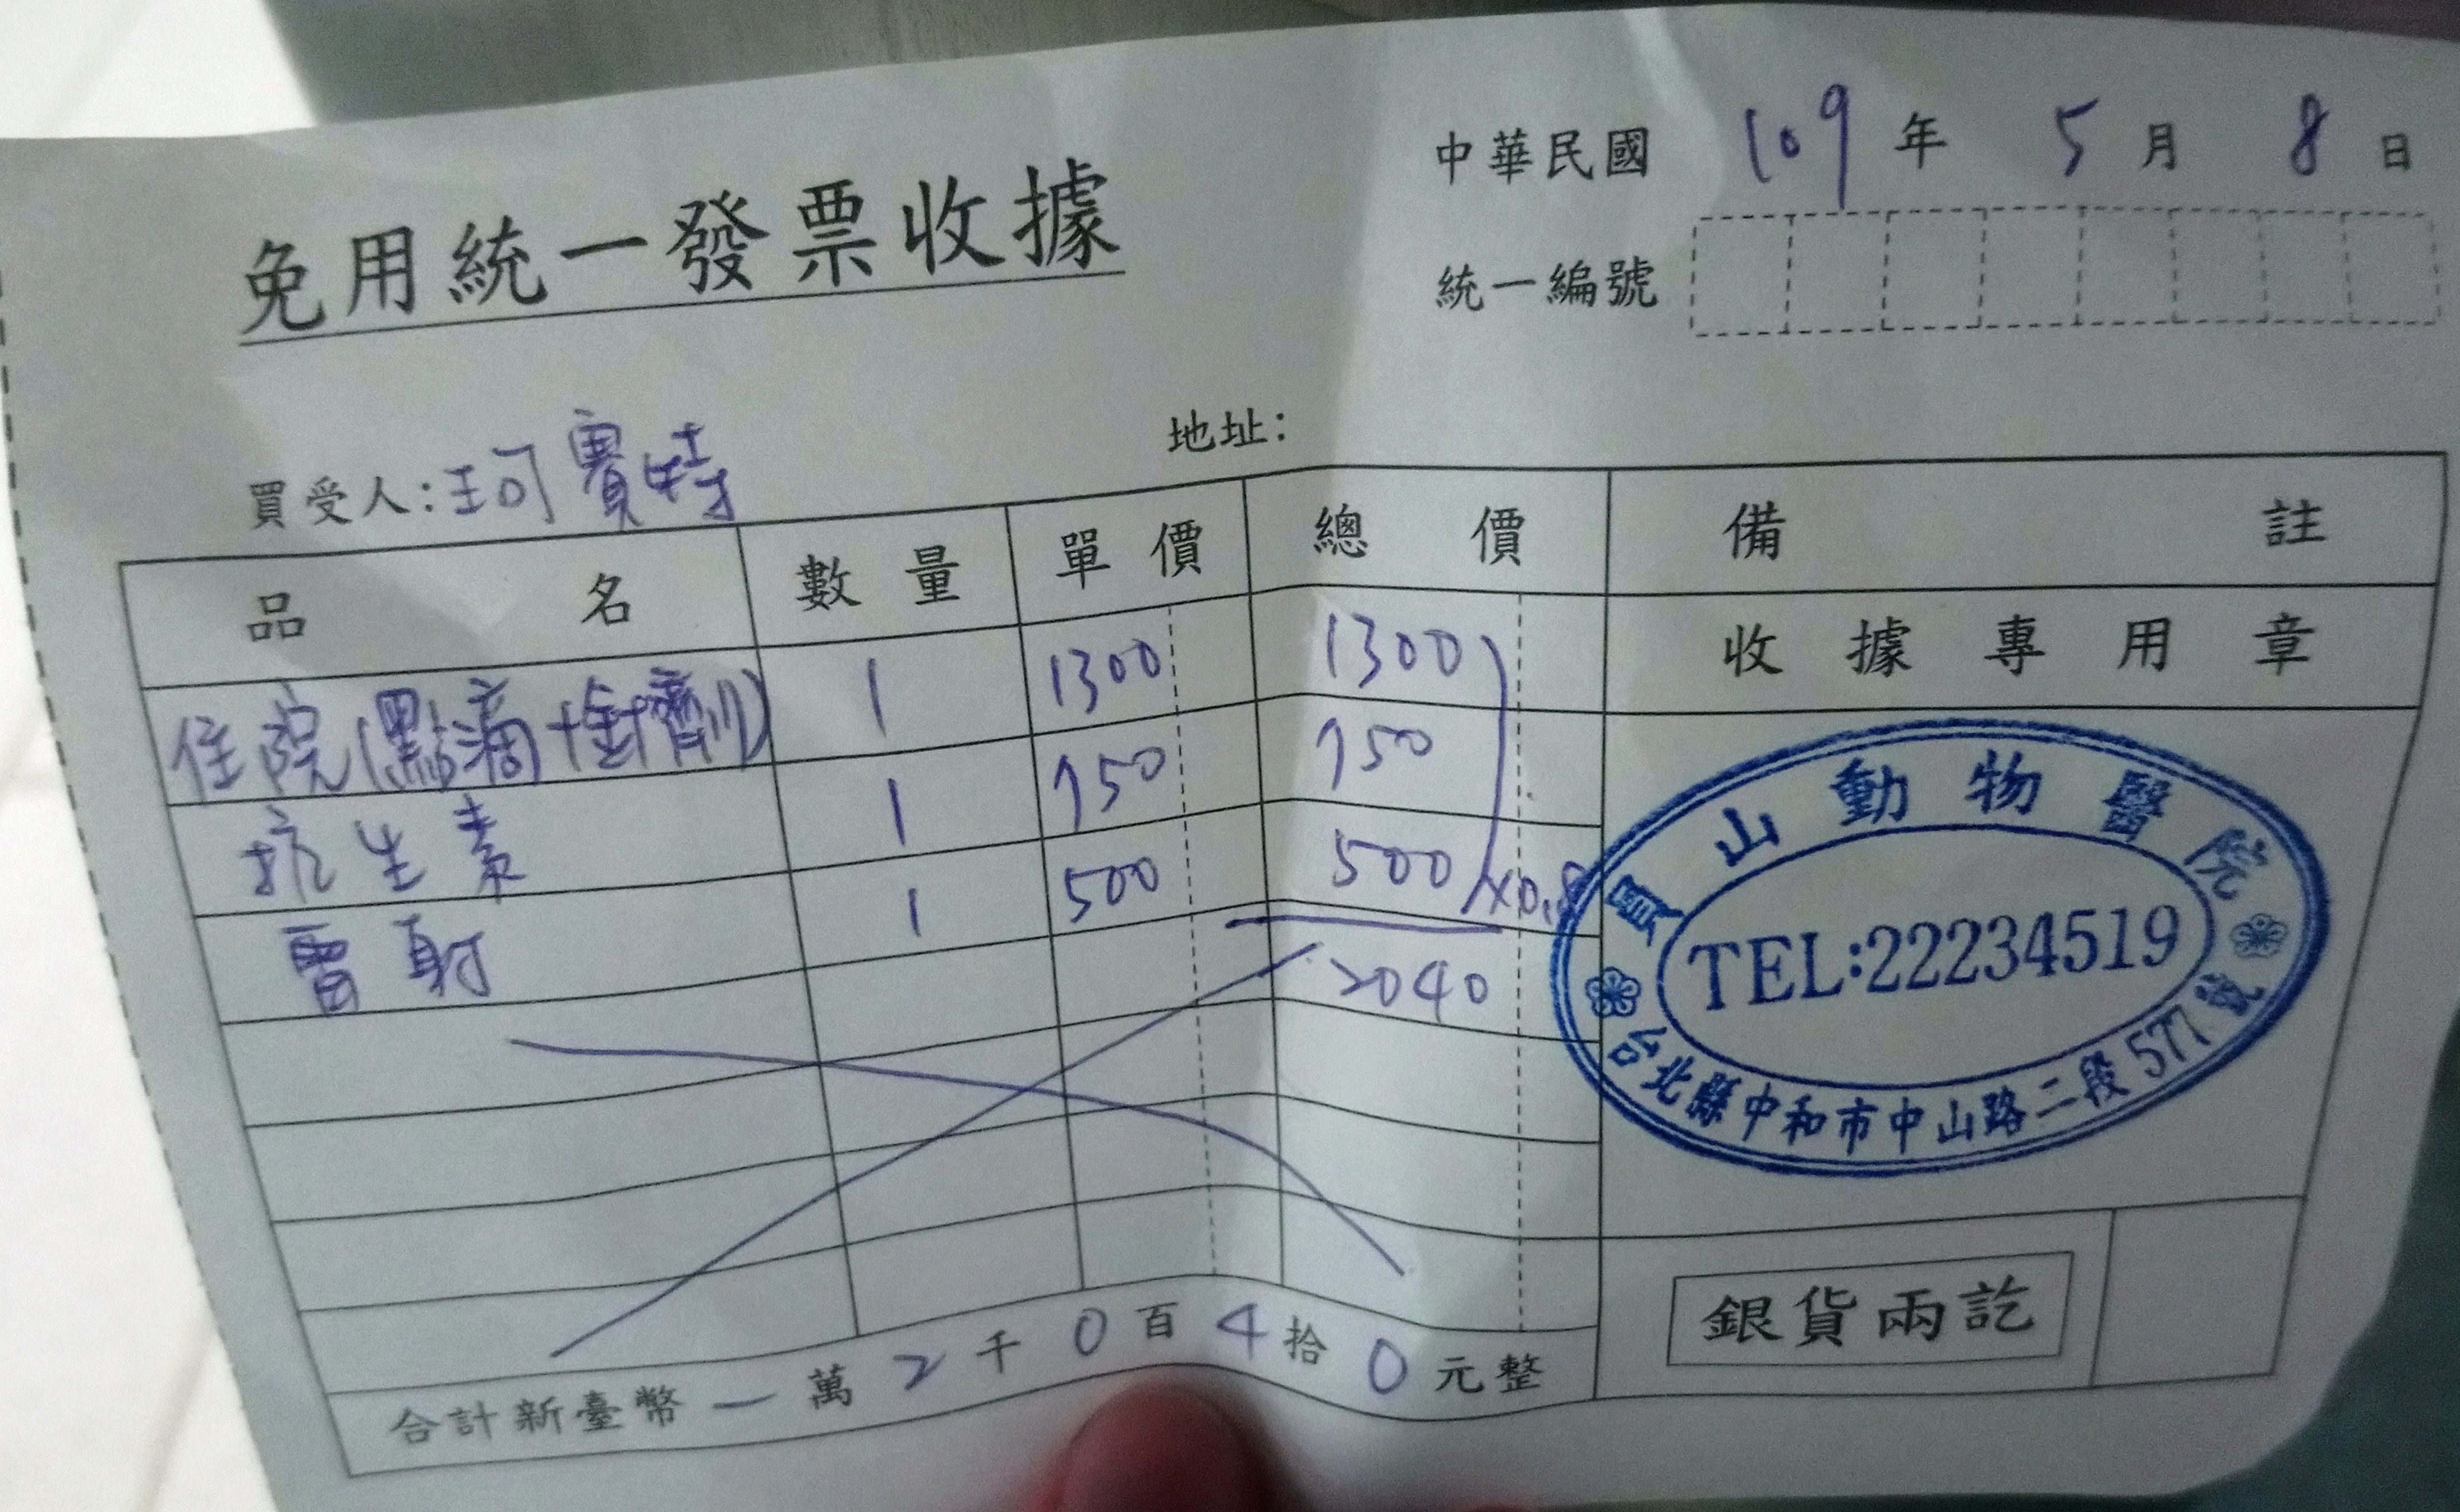 中華民國 109 年 5 月 8 日
免用統一發票收據
統一編號
地址：
買受人：珂賽特
品名 數量 單價 總價 備註
收據專用章
住院(點滴+針劑) 1 1300 1300
抗生素 1 750 750
雷射 1 500 500 ×0.8
2040
員山動物醫院
TEL:22234519
台北縣中和市中山路二段577號
銀貨兩訖
合計新臺幣 一 萬 2 千 0 百 4 拾 0 元整